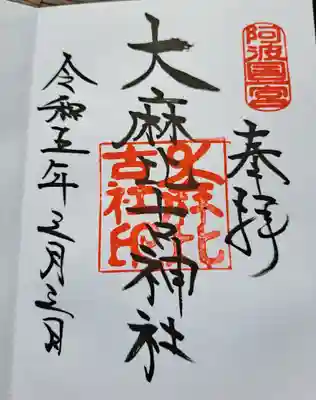 阿波國一宮
奉拝
大麻比古神社
大麻比
古社印
令和五年三月三日